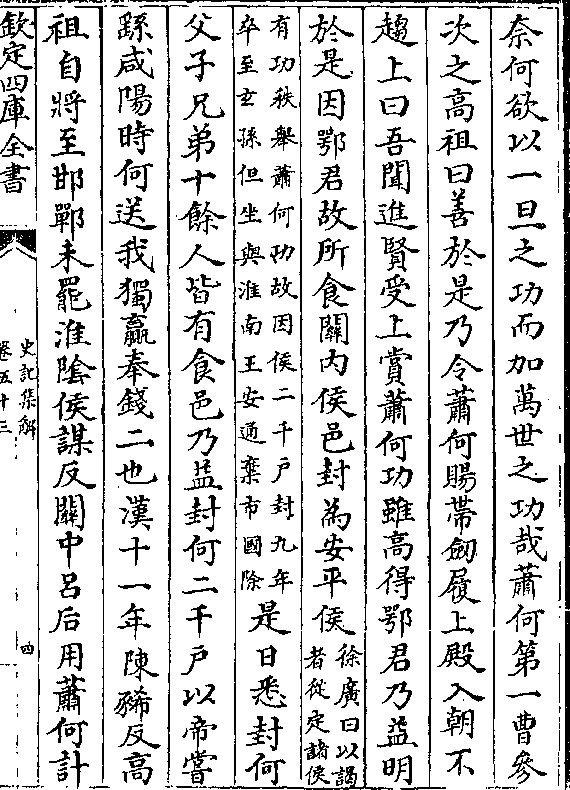 奈何欲以一旦之功而加萬世之功哉蕭何第一曹參
次之高祖曰善於是乃令蕭何賜帶劒履上殿入朝不
趨上曰吾聞進賢受上賞蕭何功雖高得鄂君乃益明
於是因鄂君故所食關内侯邑封為安平侯徐廣曰以謁
者從定諸侯
有功秩舉蕭何功故因侯二千戸封九年
卒至玄孫但坐與淮南王安通棄市國除是日悉封何
父子兄弟十餘人皆有食邑乃益封何二千戸以帝嘗
繇咸陽時何送我獨贏奉錢二也漢十一年陳豨反高
祖自將至邯鄲未罷淮陰侯謀反關中呂后用蕭何計
欽定四庫全書
史記集解
卷五十三
四